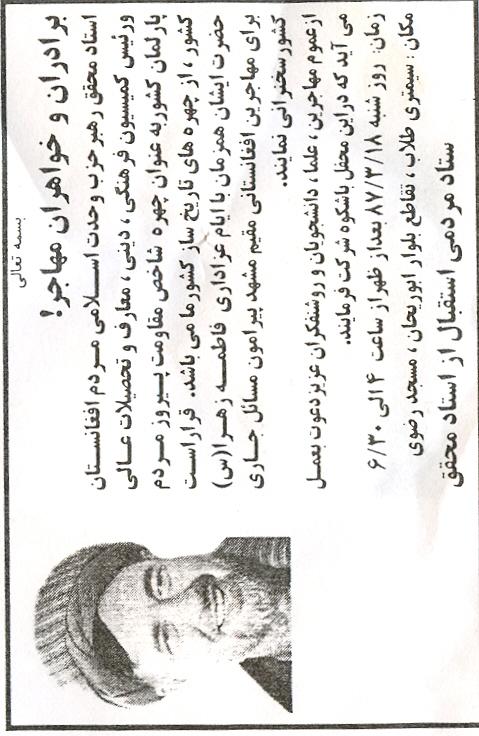 بسمه تعالی
برادران و خواهران مهاجر!
استاد محقق رهبر حزب وحدت اسلامی مردم افغانستان
ورئیس کمیسیون فرهنگی، دینی، معارف و تحصیلات عالی
پارلمان کشور به عنوان چهره شاخص مقاومت پیروز مردم
کشور، از چهره های تاریخ ساز کشور ما می باشد. قرار است
حضرت ایشان همزمان با ایام عزاداری فاطمه زهرا(س)
برای مهاجرین افغانستانی مقیم مشهد پیرامون مسائل جاری
کشور سخنرانی نمایند.
ازعموم مهاجرین، علما، دانشجویان و روشنفکران عزیز دعوت بعمل
می آید که در این محفل باشکوه شرکت فرمایند.
زمان: روز شنبه ۸۷/۳/۱۸ بعداز ظهر از ساعت ۴ الی ۶/۳۰
مکان: سیمتری طلاب، تقاطع بلوار ابوریحان، مسجد رضوی
ستاد مردمی استقبال از استاد محقق